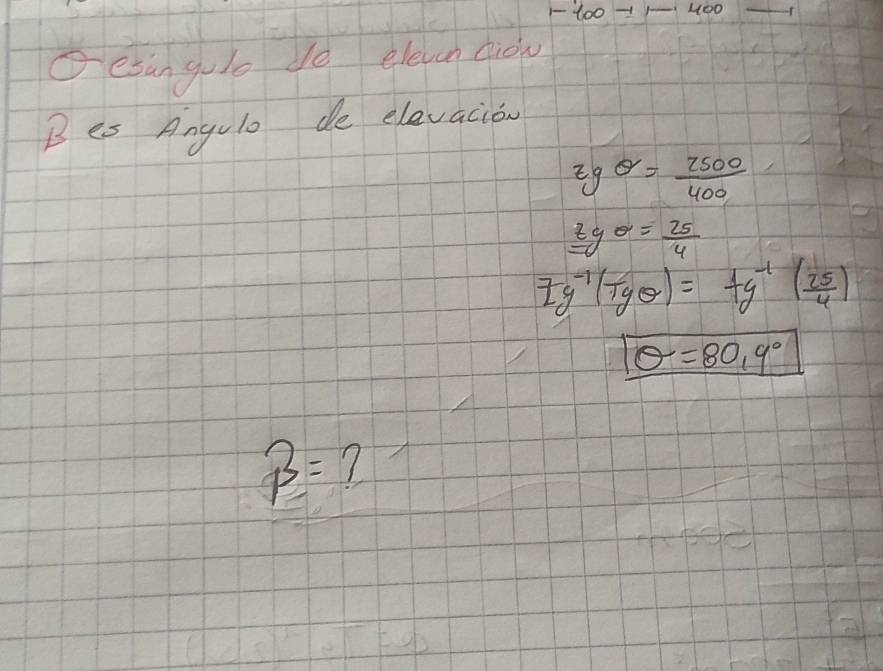 ⊢ 400 ⊣ ⊢ 400 ⊣
θ es ángulo de elevación
B es Ángulo de elevación
tg θ = 2500/400
tg θ = 25/4
Tg⁻¹(Tg θ) = tg⁻¹ (25/4)
θ = 80,9°
β = ?